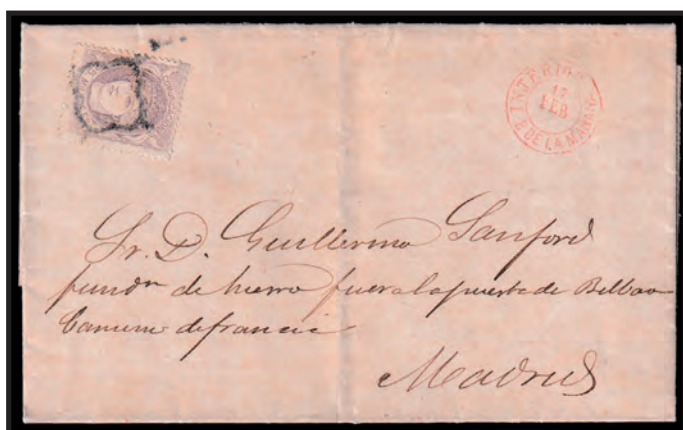 INTERIOR
17
FEB
8 DE LA MAÑANA
Sr. D. Guillermo Sanford
fundn de hierro fuera la puerta de Bilbao
Camino de francia
Madrid